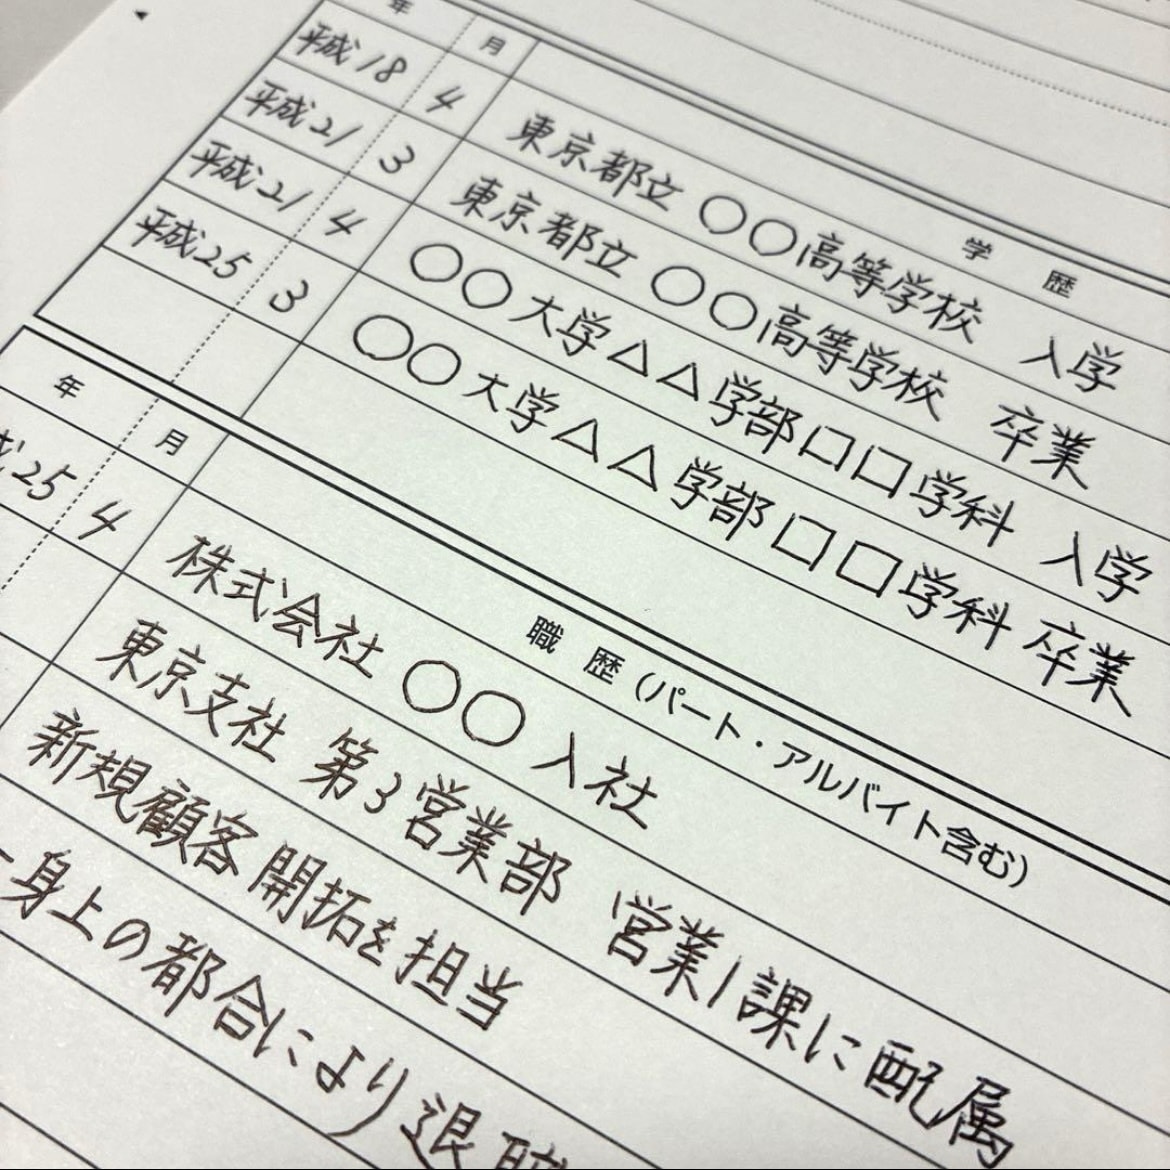 年 月 学歴
平成18 4 東京都立 〇〇高等学校 入学
平成21 3 東京都立 〇〇高等学校 卒業
平成21 4 〇〇大学△△学部□□学科 入学
平成25 3 〇〇大学△△学部□□学科 卒業
年 月 職歴(パート・アルバイト含む)
成25 4 株式会社 〇〇 入社
東京支社 第3営業部 営業1課に配属
新規顧客開拓を担当
一身上の都合により退職